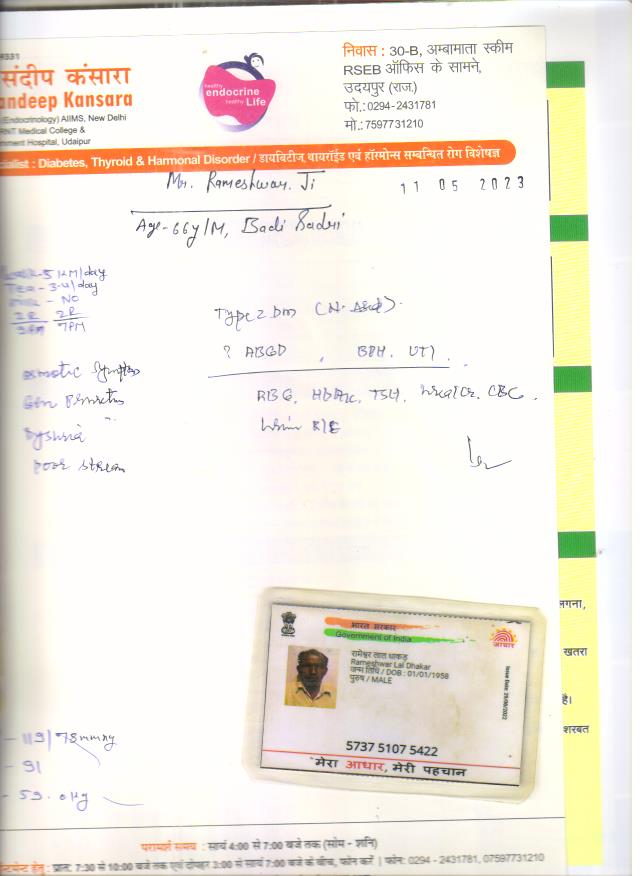 4331
संदीप कंसारा
andeep Kansara
(Endocrinology) AIIMS, New Delhi
RNT Medical College &
nment Hospital, Udaipur
healthy
endocrine
healthy Life
निवास : 30-B, अम्बामाता स्कीम
RSEB ऑफिस के सामने,
उदयपुर (राज.)
फो.: 0294-2431781
मो.: 7597731210
ialist : Diabetes, Thyroid & Harmonal Disorder / डायबिटीज, थायरॉईड एवं हॉरमोन्स सम्बन्धित रोग विशेषज्ञ
Mr. Rameshwar. Ji
11 05 2023
Age-66y/M, Badi Sadri
5 KM/day
Tea - 3-4/day
- NO
2R 2R
9AM 7PM
Type 2 Dm
? ABGD , BPH. UTI.
osmotic Symptoms
RBG, HbA1c, TSH, Urea/Cr. CBC.
Gen Pruritus
Urine R/E
Dysuria
poor stream
भारत सरकार
Government of India
आधार
रामेश्वर लाल धाकड़
Rameshwar Lal Dhakar
जन्म तिथि / DOB : 01/01/1958
पुरुष / MALE
5737 5107 5422
मेरा आधार, मेरी पहचान
लगना,
खतरा
है।
शरबत
- 119/78mmHg
- 91
- 59.0kg
परामर्श समय : सायं 4:00 से 7:00 बजे तक (सोम - शनि)
न्टमेन्ट हेतु : प्रात: 7:30 से 10:00 बजे तक एवं दोपहर 3:00 से सायं 7:00 बजे के बीच, फोन करें | फोन: 0294 - 2431781, 07597731210